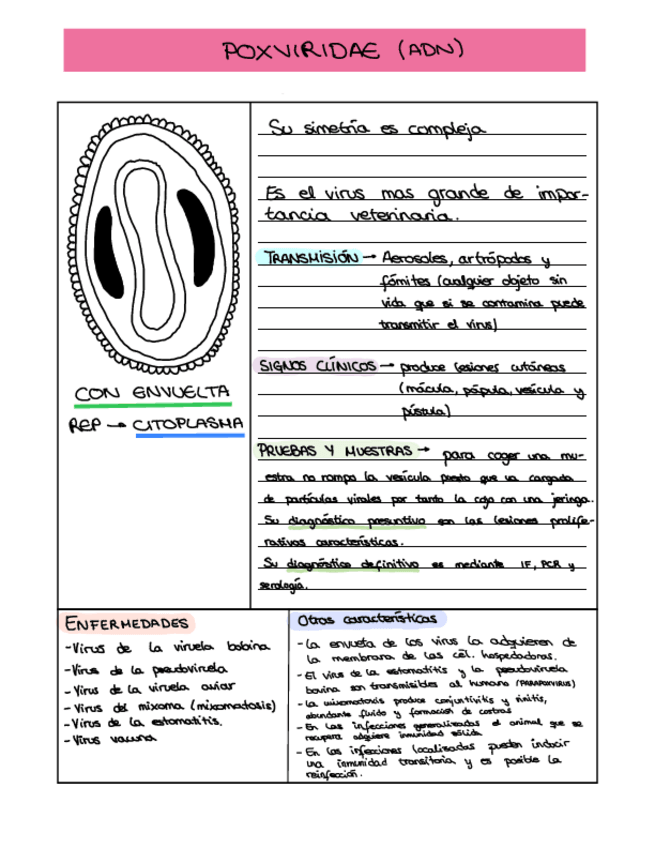 POXVIRIDAE (ADN)
Su simetría es compleja
Es el virus mas grande de impor-
tancia veterinaria.
TRANSMISIÓN → Aerosoles, artrópodos y
fómites (cualquier objeto sin
vida que si se contamina puede
transmitir el virus)
SIGNOS CLÍNICOS → produce lesiones cutáneas
(mácula, pápula, vesícula y
pústula)
CON ENVUELTA
REP → CITOPLASMA
PRUEBAS Y MUESTRAS → para coger una mu-
estra no rompo la vesícula puesto que va cargada
de partículas virales por tanto la cojo con una jeringa.
Su diagnóstico presuntivo son las lesiones prolife-
rativas características.
Su diagnóstico definitivo es mediante IF, PCR y
serología.
ENFERMEDADES
-Virus de la viruela bobina
-Virus de la pseudoviruela
-Virus de la viruela aviar
-Virus del mixoma (mixomatosis)
-Virus de la estomatitis.
-Virus vacuna
Otras características
-La envuelta de los virus la adquieren de
la membrana de las cél. hospedadoras.
-El virus de la estomatitis y la pseudoviruela
bovina son transmisibles al humano (PARAPOXVIRUS)
-La mixomatosis produce conjuntivitis y rinitis,
abundante fluido y formación de costras
-En las infecciones generalizadas el animal que se
recupera adquiere inmunidad sólida
-En las infecciones localizadas pueden inducir
una inmunidad transitoria y es posible la
reinfección.